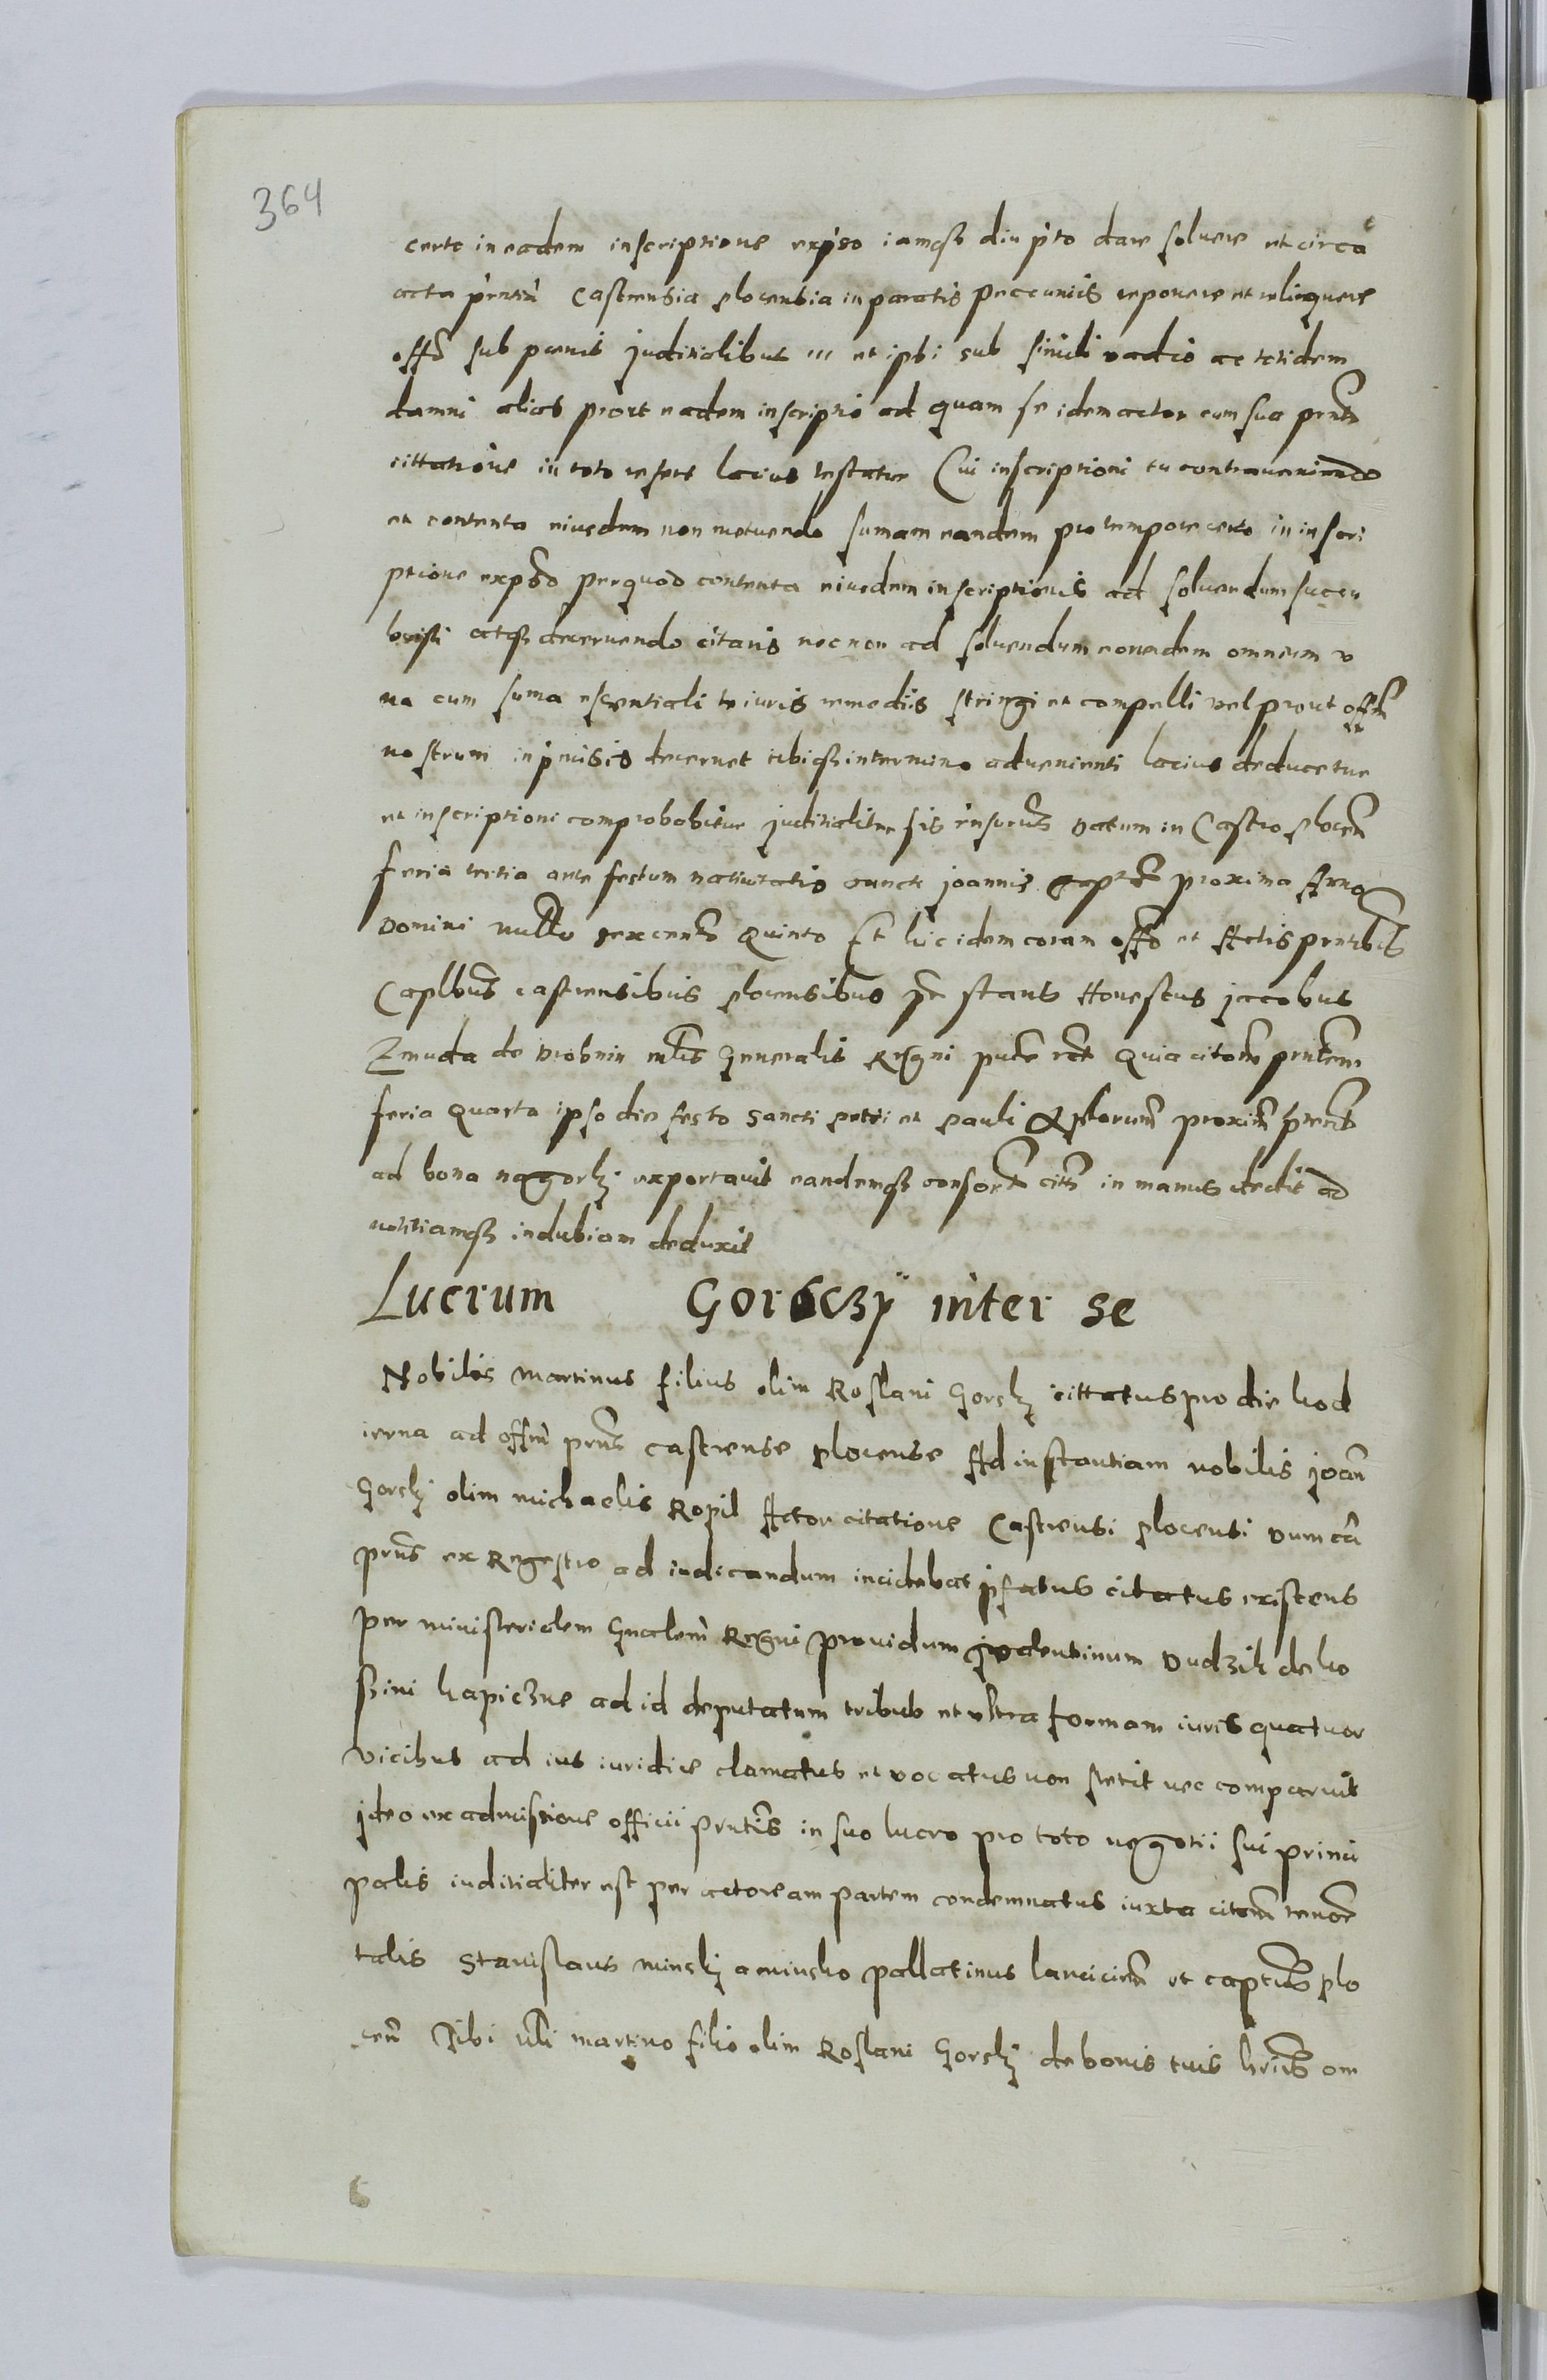 364
certo in eadem inscriptione expso iamqz diu pto dare soluere et circa
acta prntia Castrensia plocensia in paratis peccuniis reponere et relinquere
offo sub poenis juditialibus et ipsi sub simili vadio ac totidem
damni alias prout eadem inscriptio ad quam se idem actor cum sua prnti
cittatione in toto refert lacius testatur Cui inscriptioni tu contraueniendo
et contenta eiusdem non metuendo sumam eandem pro tempore certo in inscri
ptione expsso per quod contenta eiusdem inscriptionis ad soluendum succu
buisti atqz decernendo citaris nec non ad soluendum eorundem omnium v
na cum suma essentiali te iuris remediis stringi et compelli vel prout offm
nostrum in pmissis decernet tibiqz in termino aduenienti lacius deducetur
et inscriptioni comprobabitur juditialiter sis rnsurus Datum in Castro plocen
feria tertia ante festum natiuitatis sancti joannis Baptae proxima Anno
Domini millo sexcento Quinto Et hic idem coram offo et Actis prntibus
Caplbus castrensibus plocensibus pr stans Honestus jacobus
Zmuda de Drobnin mlis Generalis Regni pure rect Quia citonem prntem
feria Quarta ipso die festo Sancti petri et pauli Aplorum proxime prterita
ad bona na gorky exportauit eandemqz consortem citti in manus dedit ad
notitiamqz indubiam deduxit
Lucrum Gorsczÿ inter se
Nobilis Martinus filius olim Roslani Gorsky cittatus pro die hod
ierna ad offm prns castrense plocense Ad instantiam nobilis joan
Gorsky olim michaelis Kopil Actor citatione Castrensi plocensi Dum ca
prns ex Regestro ad iudicandum incidebat pfatus citatus existens
per ministerialem Gnalem Regni prouidum jvalentinum Dudzik de ko
szini kapiczne ad id deputatum tribus et vltra formam iuris quatuor
vicibus ad ius iuridice clamatus et vocatus non stetit nec comparuit
jdeo ex admissione officii prntis in suo lucro pro toto negotii sui princi
palis iuditialiter est per actoream partem condemnatus iuxta citonis tenore
talis Stanislaus minsky a minsko pallatinus lancicien et captneus plo
cen Tibi nli martino filio olim Roslani Gorsky de bonis tuis hriis om